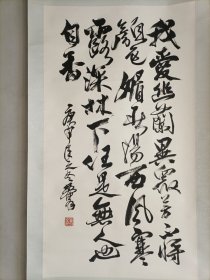 我愛幽蘭異眾芳不將
顏色媚春陽西風寒
露深林下任是無人也
自香
庚申年之冬